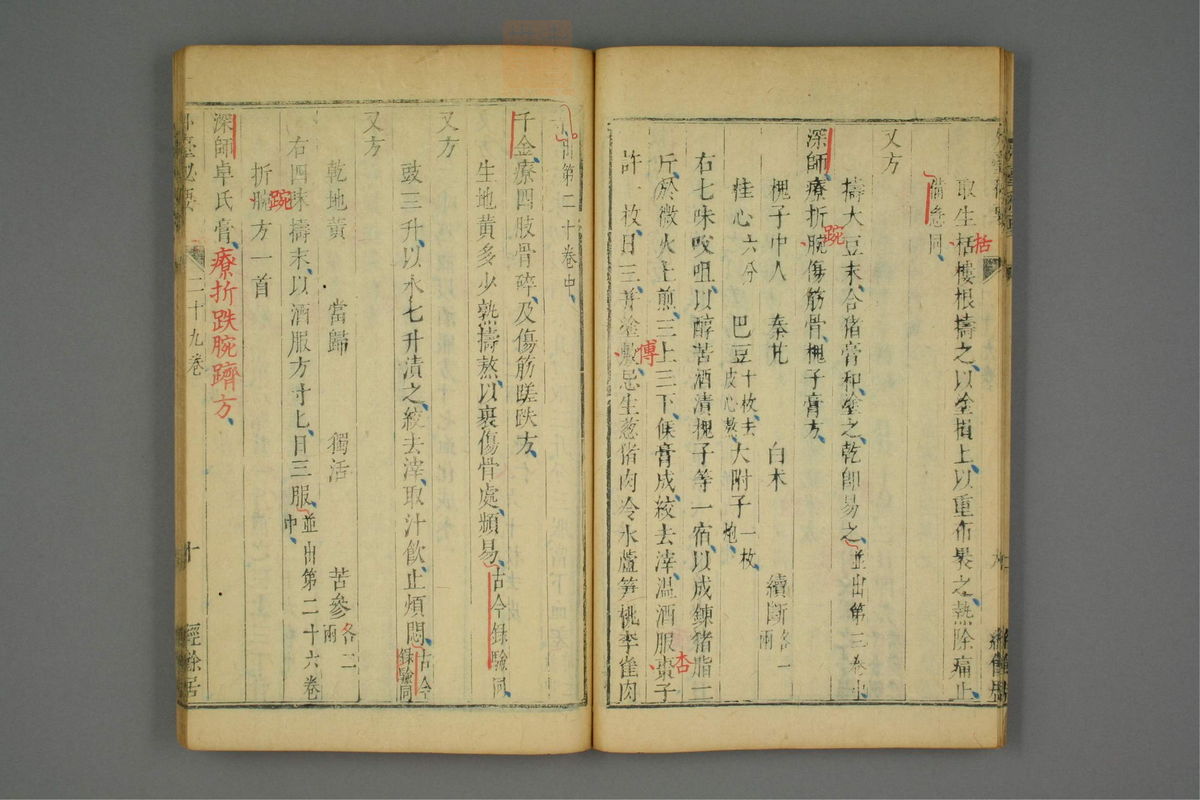 取生栝樓根擣之以塗損上以重布裹之熱除痛止
備急同
又方
擣大豆末合猪膏和塗之乾卽易之並出第三卷中
深師療折腕傷筋骨槐子膏方
槐子中人 秦艽 白朮 續斷各一兩
桂心六分 巴豆十枚去皮心熬 大附子一枚炮
右七味㕮咀以醇苦酒漬槐子等一宿以成鍊猪脂二
斤於微火上煎三上三下候膏成絞去滓溫酒服棗子
許一枚日三并塗敷忌生葱猪肉冷水蘆笋桃李雀肉
栝
踠
傅
杏
出第二十卷中
千金療四肢骨碎及傷筋蹉跌方
生地黃多少熟擣熬以裹傷骨處頻易古今錄驗同
又方
豉三升以水七升漬之絞去滓取汁飲止煩悶古今錄驗同
又方
乾地黃 當歸 獨活 苦參各二兩
右四味擣末以酒服方寸匕日三服並出第二十六卷中
折腕方一首
踠
深師卓氏膏療折跌腕躋方
外臺祕要 二十九卷 十 經餘居